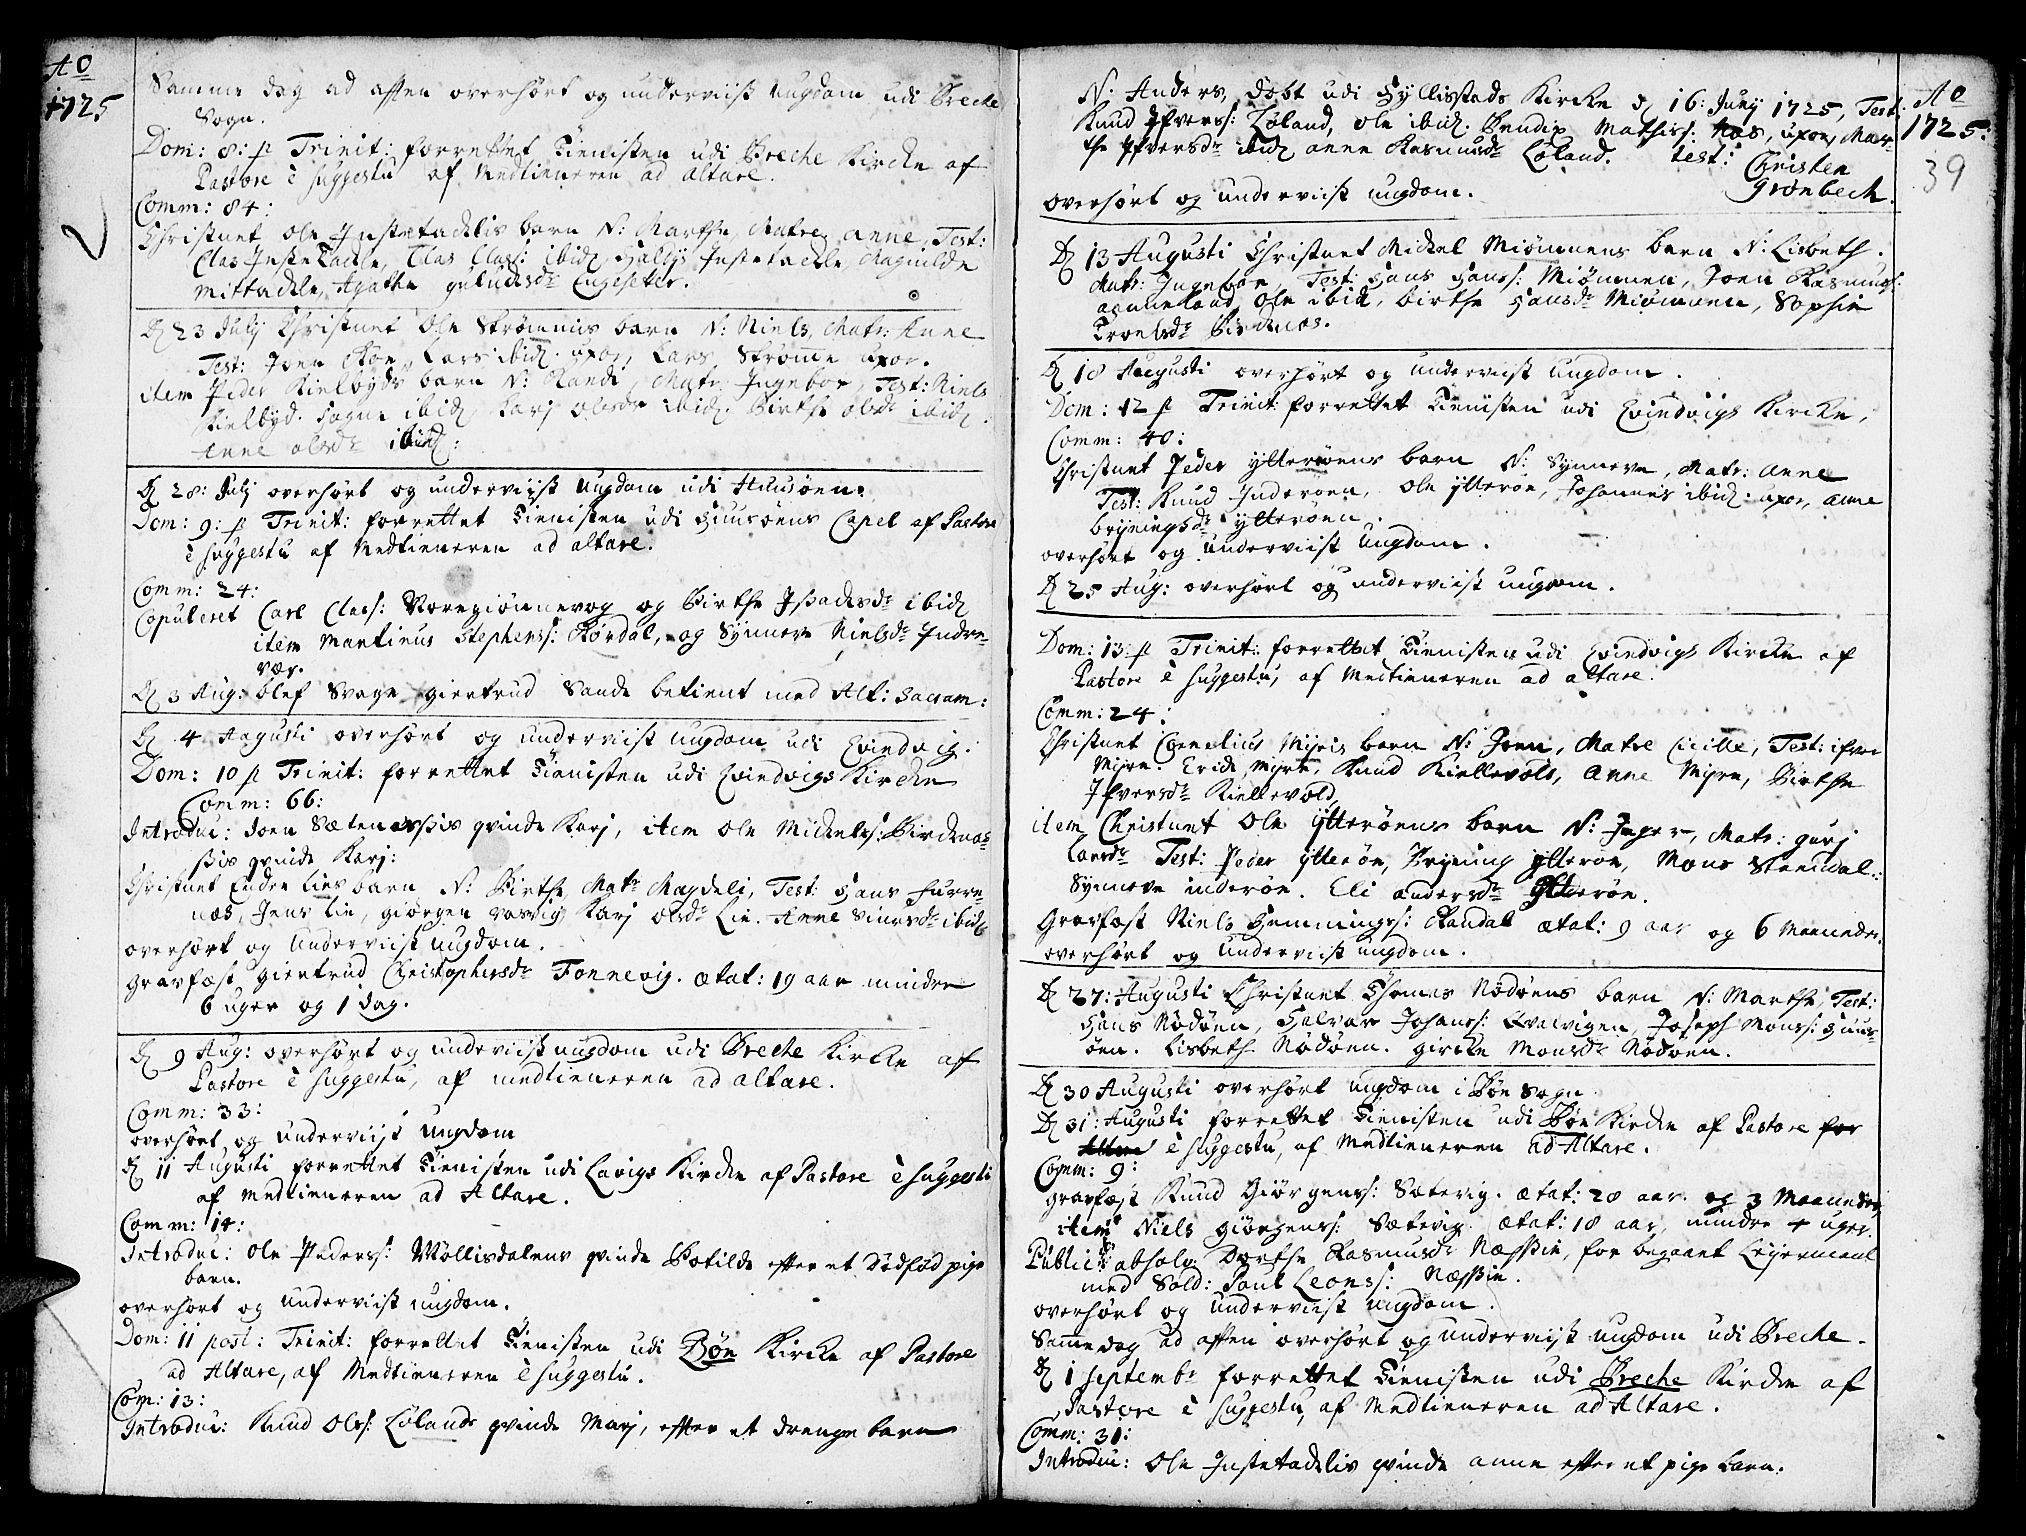 Ao
1725
Samme dag ad aften overhørt og underviist ungdom udi Breche
Sogn.
Dom: 8: p Trinit: forrettet Tienisten udi Breche Kircke af
Pastore è suggestu af Medtieneren ad altare.
Comm: 84:
Christnet Ole Instetackelis barn N: Marthe, Matre Anne, Test:
Clas Instetackle, Clas Clas: ibid, Instetackle, Magnilde
Mittackle, Agathe Engesetter.
D 23 July Christnet Ole Strømmis barn N: Niels, Matr: Anne
Test: Joen Lars ibid. uxor, Lars Strømme uxor.
item Peder Kielbyds barn N: Randi, Matr. Ingebor, Test: Niels
Kielbyd. Hagne ibid Karj olsdr ibid. Birthe olsdr ibid.
Anne olsdr ibid:
D 28: July overhørt og underviist ungdom udi Huusøen.
Dom: 9: p Trinit: forrettet Tienisten udi Huusøens Capel af Pastore
è suggestu af Medtieneren ad altare.
Comm: 24:
Copuleret Carl Clas: og Birthe Isachsdr ibid
item Martinus Stephens: Rørdal, og Synneve Nielsdr Indre-
vær.
D 3 Aug: Olef giertrud Sande betient med Alt: Sacram:
D 4 Augusti overhørt og underviist ungdom udi Evindvig.
Dom: 10 p Trinit: forrettet Tienisten udi Evindvigs Kircke
Comm: 66:
Introduc: Joen qvinde Karj, item Ole Mickels: Birckenes
qvinde Karj:
Christnet Endre Lies barn N: Birthe, Matr Magdeli, Test: Hans furre-
nes, Jens Lie, giørgen Karj olsdr Lie. Anne ibid
overhørt og underviist ungdom.
Gravfæst giertrud Christophersdr Fonnevig. ætat: 19 aar mindre
6 uger og 1 dag.
D 9 Aug: overhørt og underviist ungdom udi Breche Kircke af
Pastore è suggestu, af medtieneren ad altare.
Comm: 33:
overhørt og underviist ungdom
D 11 Augusti forrettet Tienisten udi Lavigs Kircke af Pastore è suggestu
af Medtieneren ad Altare.
Comm: 14:
Introduc: Ole Peders: Møllisdalens qvinde Botilde efter et dødfød pige
barn.
overhørt og underviist ungdom.
Dom: 11 post: Trinit: forrettet Tienisten udi Bøe Kircke af Pastore
ad Altare, af Medtieneren è suggestu.
Com: 13:
Introduc: Knud Ols: Lølands qvinde Marj, efter et drenge barn
N: Anders, døbt udi Hyllestads Kircke d 16: Junj 1725, Test:
Knud Ifvers: Løland, Ole ibid: Bendix Mathis: Næs, uxor, Mar-
the Ifversdr ibid anne Rasmusdr Løland. test: Christen
Grønbech.
overhørt og underviist ungdom.
Ao
1725:
39
D 13 Augusti Christnet Mickel Miømmens barn N: Lisbeth.
Matr: Ingebor, Test: Hans Hans: Miømmen, Joen Rasmus:
Ole ibid, Birthe Hansdr Miømmen, Sophie
Troelsdr Birckenes.
D 18 Augusti overhørt og underviist ungdom.
Dom: 12 p Trinit: forrettet Tienisten udi Evindvigs Kircke,
Comm: 40:
Christnet Peder ytterøens barn N: Synneve, Matr: Anne
Test: Knud Inderøen, Ole ytterøe, Johannes ibid: uxor, anne
brynings dr ytterøen.
overhørt og underviist ungdom.
D 25 Aug: overhørt og underviist ungdom.
Dom: 13: p Trinit: forrettet Tienisten udi Evindvigs Kircke af
Pastore è suggestu, af Medtieneren ad altare.
Comm: 24:
Christnet Cornelius Myris barn N: Joen, Matre Cicille, Test: ifver
Myre. Erick Myre, Knud Kiellevold, Anne Myre, Birthe
Ifversdr Kiellevold,
item Christnet Ole Ytterøens barn N: Inger, Matr: gurj
larsdr Test: Peder ytterøe, Bryning ytterøe, Mons Stendal:
Synneve inderøe. Eli andersdr Ytterøe.
Gravfæst Niels Hemmings: Randal ætat: 9 aar og 6 Maaneder.
overhørt og underviist ungdom.
D 27: Augusti Christnet Thomes Nødøens barn N: Marthe, Test:
Hans Nødøen, Halvor Johans: Qvalvigen, Joseph Mons: Huus-
øen. Lisbeth Nødøen. gircke Monsdr Nødøen.
D 30 Augusti overhørt ungdom i Bøe Sogn
D 31: Augusti forrettet Tienisten udi Bøe Kircke af Pastore for
è suggestu, af Medtieneren ad Altare.
Comm: 9:
gravfæst Knud Giørgens: Sætevig. ætat: 28 aar og 3 Maaneder
item Niels giørgens: Sætevig. ætat: 18 aar, mindre 4 uger.
Public: absolv: Dorthe Rasmusdr Næssie, for begaaet Leyermaal
med Sold: Poul Leons: Næssie.
overhørt og underviist ungdom.
Same dag ad aften overhørt og underviist ungdom udi Breche.
D 1 septembr forrettet Tienisten udi Breche Kircke af
Pastore è suggestu, af Medtieneren ad Altare.
Comm: 31:
Introduc: Ole Instetackelis qvinde anne efter et pige barn.